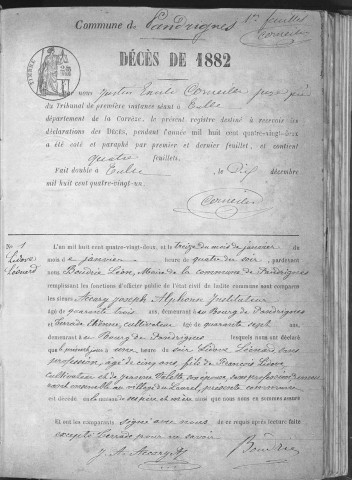 Commune de Pandrignes 1er feuillet
Corneille
TIMBRE
DÉCÈS DE 1882
nous Justin Emile juge
du Tribunal de première instance séant à Tulle
département de la Corrèze, le présent registre destiné à recevoir les
déclarations des DÉCÈS, pendant l'année mil huit cent quatre-vingt-deux
a été coté et paraphé par premier et dernier feuillet, et contient
quatre feuillets.
Fait double à Tulle, le dix décembre
mil huit cent quatre-vingt-un.
N° 1
Lidove
Léonard
L'an mil huit cent quatre-vingt-deux, et le treize du mois de janvier
du mois de janvier heure de quatre du soir, pardevant
nous Boudrie Léon, Maire de la commune de Pandrignes
remplissant les fonctions d'officier public de l'état civil de ladite commune sont comparus
les sieurs Joseph Alphonse Instituteur
âgé de quarante trois ans, demeurant au Bourg de Pandrignes
et Terrade Etienne, cultivateur âgé de quarante sept ans,
demeurant au Bourg de Pandrignes lesquels nous ont déclaré
que heure du soir Lidove Léonard sans
profession, âgé de cinq ans, fils de François Lidove
cultivateur et de Jeanne son épouse, sans profession demeu
rant ensemble au village du présente commune
est décédé
Et ont les comparants signé avec nous, de ce après lecture faite
excepté Terrade pour ne savoir
Boudrie